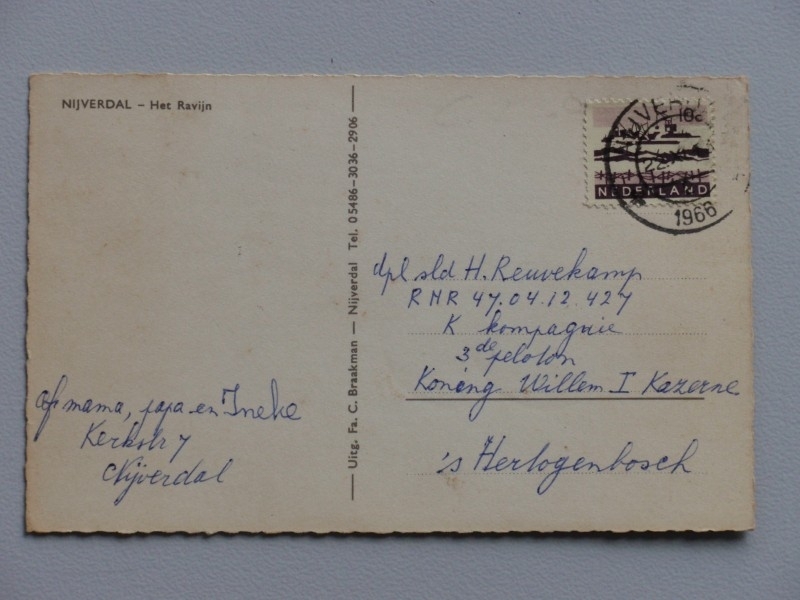 NIJVERDAL – Het Ravijn
Uitg. Fa. C. Braakman — Nijverdal Tel. 05486-3036-2906
NIJVERD
1966
NEDERLAND
dpl sld H. Reuvekamp
RNR 47.04.12.427
K kompagnie
3de peloton
Koning Willem I Kazerne
's Hertogenbosch
mama, papa en Ineke
Kerkstr 7
Nijverdal